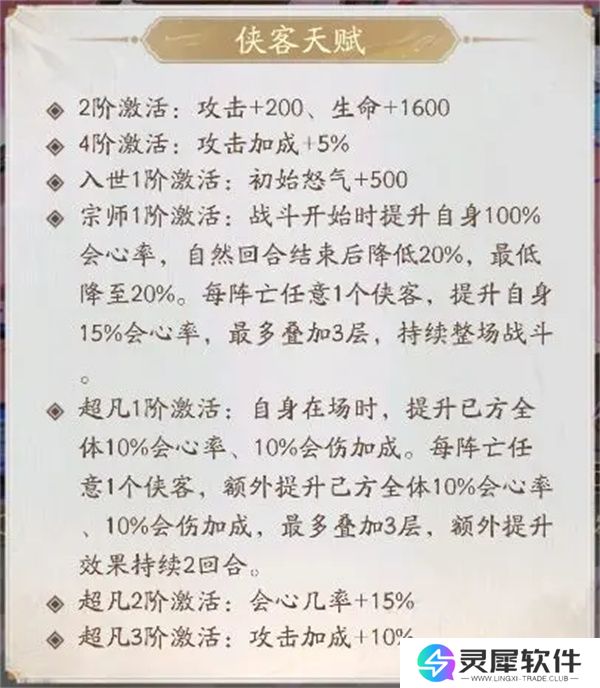 侠客天赋
2阶激活：攻击+200、生命+1600
4阶激活：攻击加成+5%
入世1阶激活：初始怒气+500
宗师1阶激活：战斗开始时提升自身100%
会心率，自然回合结束后降低20%，最低
降至20%。每阵亡任意1个侠客，提升自身
15%会心率，最多叠加3层，持续整场战斗
。
超凡1阶激活：自身在场时，提升己方全
体10%会心率、10%会伤加成。每阵亡任
意1个侠客，额外提升己方全体10%会心率
、10%会伤加成，最多叠加3层，额外提升
效果持续2回合。
超凡2阶激活：会心几率+15%
超凡3阶激活：攻击加成+10%
灵犀软件
WWW.LINGXI-TRADE.CLUB